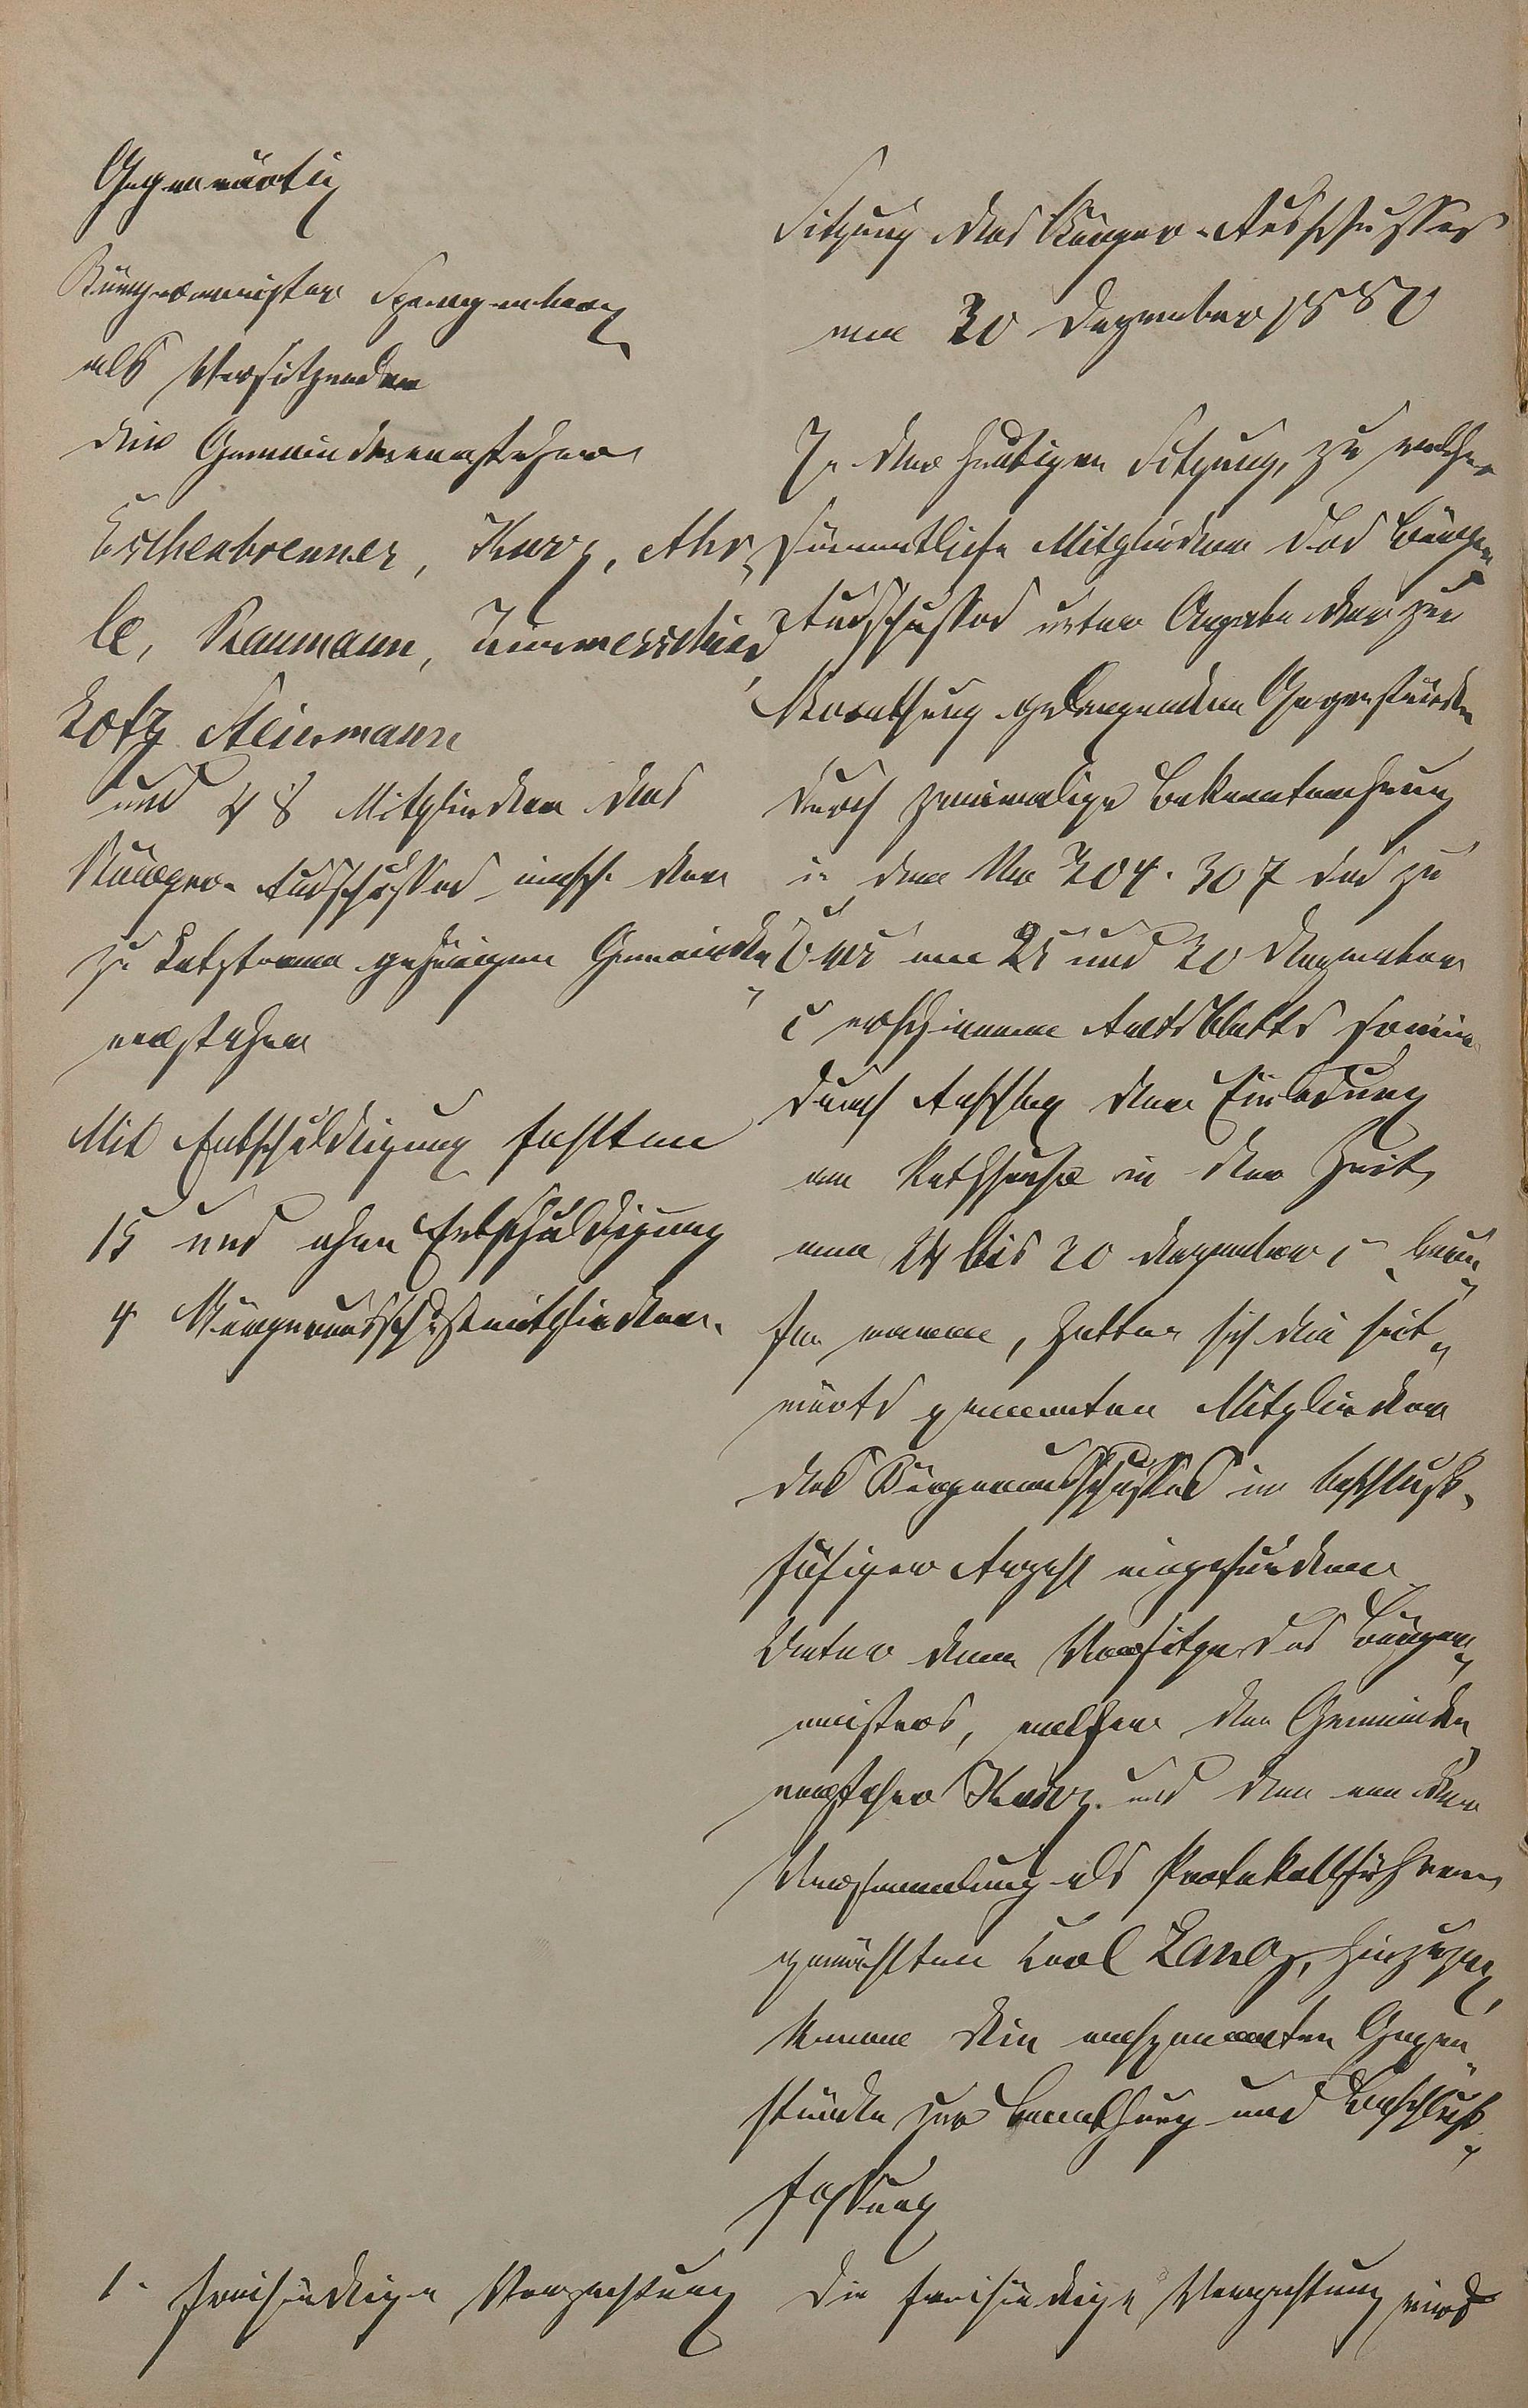 Gegenwärtig
Bürgermeister Spangenberg
als Vorsitzender
die Gemeindevorsteher
Eschenbrenner, Kurz, Ahr„
le, Raumann, Zimmerschied,
Lotz Steinmann
und 48 Mitglieder des
Bürger-Ausschusses incl. der
zu Letzteren gehörigen Gemeinde„
vorsteher
Mit Entschuldigung fehlten
15 und ohne Entschuldigung
4 Bürgerausschußmitglieder.
Sitzung des Bürger-Ausschusses
vom 30 Dezember 1880
In der heutigen Sitzung, zu welcher
sämmtliche Mitglieder des Bürger„
Ausschusses unter Angabe der zur
Berathung gelangenden Gegenstände
durch zweimalige Bekanntmachung
in den Nr 304. 307 des zu
Ems am 28 und 30 Dezember
c erschienenen Amtsblatts sowie
durch Anschlag der Einladung
am Rathhause in der Zeit
vom 24 bis 30 Dezember c beru„
fen waren, hatten sich die seit„
wärts genannten Mitglieder
des Bürgerausschusses in beschluß„
fähiger Anzahl eingefunden
Unter dem Vorsitze des Bürger„
meisters, welcher den Gemeinde„
vorsteher Kurz und den von der
Versammlung als Protokollführer
gewählten Carl Lang, hinzuge„
kamen die nachgenannten Gegen„
stände zur Berathung und Beschluß„
fassung
1. freihändige Verpachtung
Die freihändige Verpachtung wird